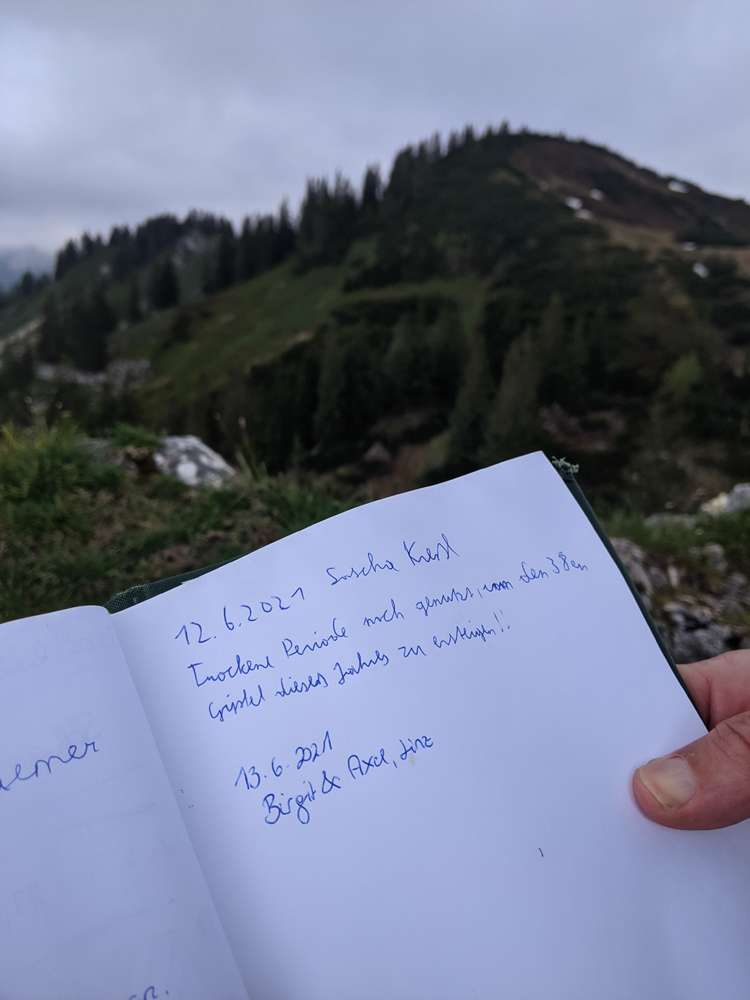 12.6.2021 Sascha
Trockene Periode noch genutzt, um den 38en
Gipfel dieses Jahres zu ersteigen!!
13.6.2021
Birgit & Axel, Linz